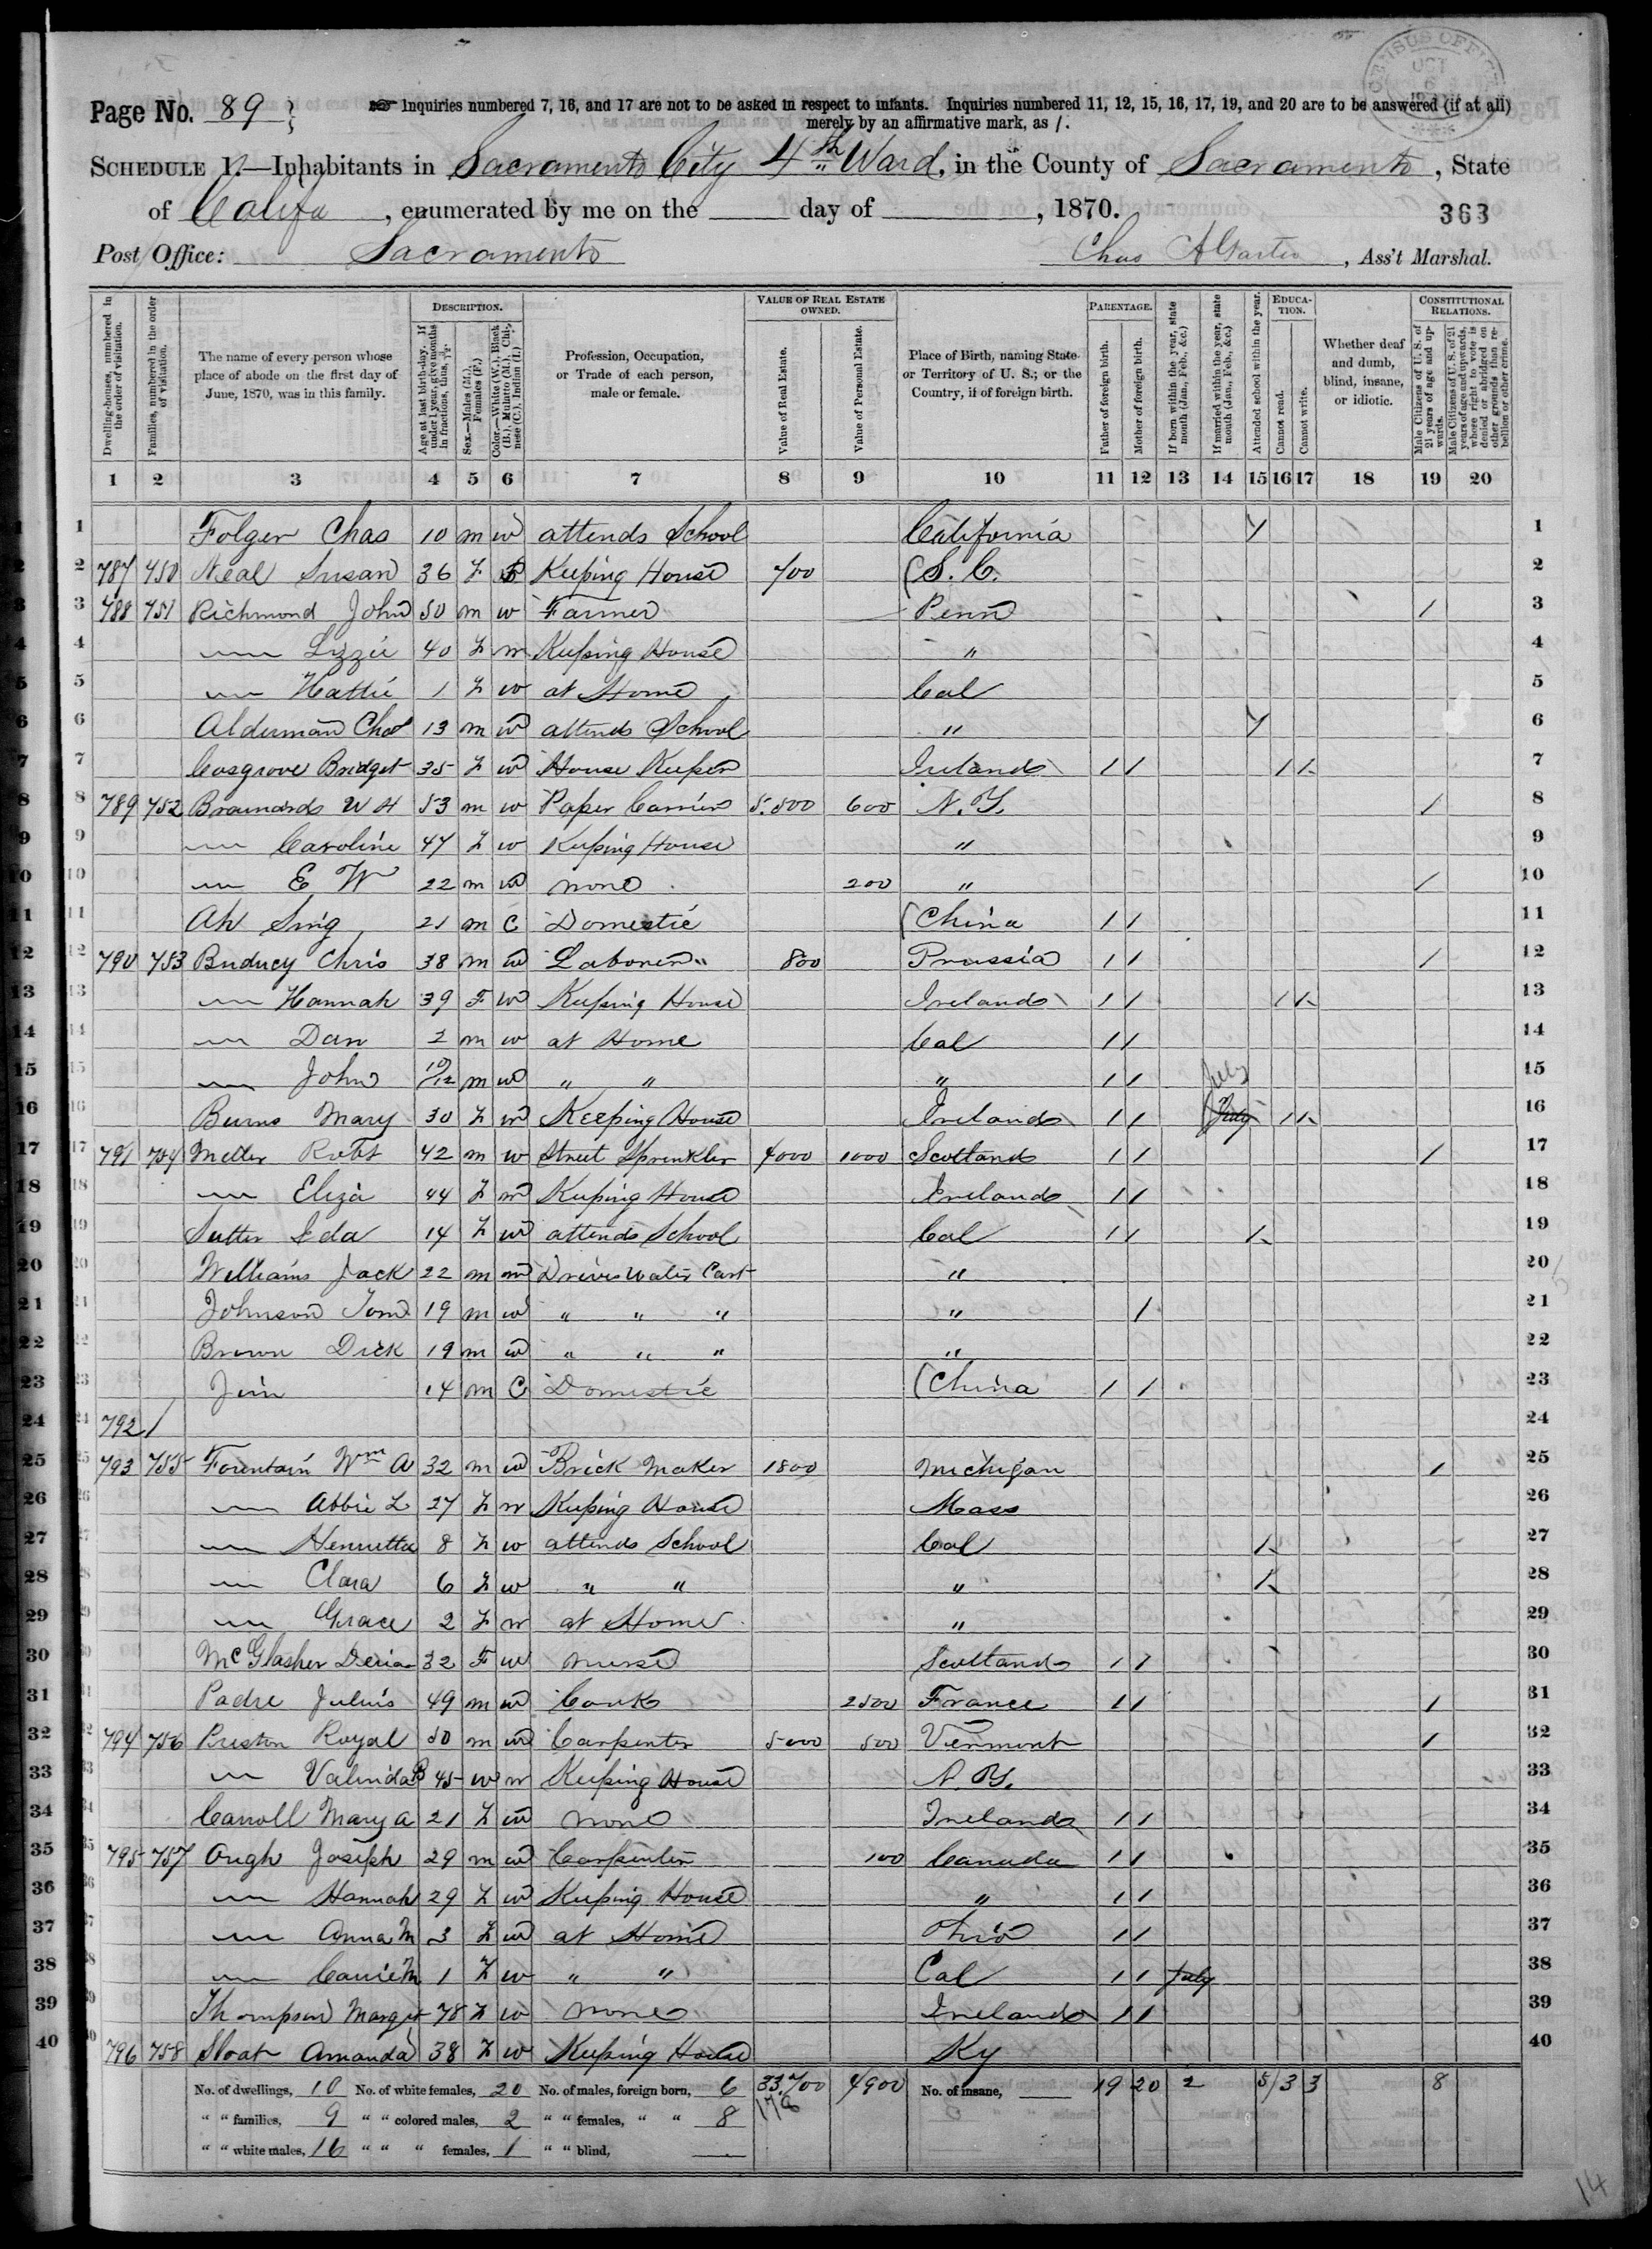 Page No. 89
Inquiries numbered 7, 16, and 17 are not to be asked in respect to infants. Inquiries numbered 11, 12, 15, 16, 17, 19, and 20 are to be answered (if at all)
merely by an affirmative mark, as /.
SCHEDULE 1.—Inhabitants in Sacramento City 4th Ward, in the County of Sacramento, State
of Califa, enumerated by me on the ____ day of ____, 1870.
363
Post Office: Sacramento
Chas, Ass't Marshal.
CENSUS OFFICE OCT 6
Dwelling-houses, numbered in the order of visitation.
Families, numbered in the order of visitation.
The name of every person whose place of abode on the first day of June, 1870, was in this family.
DESCRIPTION.
Age at last birth-day. If under 1 year, give months in fractions, thus,
Sex.—Males (M.), Females (F.)
Color.—White (W.), Black (B.), Mulatto (M.), Chinese (C.), Indian (I.)
Profession, Occupation, or Trade of each person, male or female.
VALUE OF REAL ESTATE OWNED.
Value of Real Estate.
Value of Personal Estate.
Place of Birth, naming State or Territory of U. S.; or the Country, if of foreign birth.
PARENTAGE.
Father of foreign birth.
Mother of foreign birth.
If born within the year, state month (Jan., Feb., &c.)
If married within the year, state month (Jan., Feb., &c.)
Attended school within the year.
EDUCATION.
Cannot read.
Cannot write.
Whether deaf and dumb, blind, insane, or idiotic.
CONSTITUTIONAL RELATIONS.
Male Citizens of U. S. of 21 years of age and upwards.
Male Citizens of U. S. of 21 years of age and upwards, where right to vote is denied or abridged on other grounds than rebellion or other crime.
1 2 3 4 5 6 7 8 9 10 11 12 13 14 15 16 17 18 19 20
1 Folger Chas 10 m w attends School California / 1
2 787 450 Neal Susan 36 F B Keeping House 700 S. C. 2
3 788 751 Richmond John 50 m w Farmer Penn / 3
4 — Lizzie 40 F w Keeping House " 4
5 — Hattie 1 F w at Home Cal 5
6 Alderman Chas 13 m w attends School " / 6
7 Cosgrove Bridget 35 F w House Keeper Ireland / / / / 7
8 789 752 W H 53 m w Paper Carrier 5.500 600 N. Y. / 8
9 — Caroline 47 F w Keeping House " 9
10 — E W 22 m w none 200 " / 10
11 Ah Sing 21 m C Domestic China / / 11
12 790 753 Chris 38 m w Laborer 800 Prussia / / / 12
13 — Hannah 39 F w Keeping House Ireland / / / / 13
14 — Dan 2 m w at Home Cal / / 14
15 — John 10/12 m w " " " / / July 15
16 Burns Mary 30 F w Keeping House Ireland / / July / / 16
17 791 754 Robt 42 m w Street Sprinkler 4000 1000 Scotland / / / 17
18 — Eliza 44 F w Keeping House Ireland / / 18
19 Sutter Ida 14 F w attends School Cal / / / 19
20 Williams Jack 22 m w Drives Water Cart " 20
21 Johnson Tom 19 m w " " " " / 21
22 Brown Dick 19 m w " " " " 22
23 Jim 14 m C Domestic China / / 23
24 792 / 24
25 793 755 Fountain Wm A 32 m w Brick Maker 1800 Michigan / 25
26 — Abbie L 27 F w Keeping House Mass 26
27 — Henrietta 8 F w attends School Cal / 27
28 — Clara 6 F w " " " / 28
29 — Grace 2 F w at Home " 29
30 McGlasher 32 F w nurse Scotland / / 30
31 Padre Julius 49 m w Cook 2500 France / / / 31
32 794 756 Preston Royal 50 m w Carpenter 5000 500 Vermont / 32
33 — Valinda B 45 w w Keeping House N. Y. 33
34 Carroll Mary A 21 F w none Ireland / / 34
35 795 757 Ough Joseph 29 m w Carpenter 100 Canada / / 35
36 — Hannah 29 F w Keeping House " / / 36
37 — Anna M 3 F w at Home Ohio / / 37
38 — Carrie M 1 F w " " Cal / / July 38
39 Thompson Margt 78 F w none Ireland / / 39
40 796 758 Sloat Amanda 38 F w Keeping House Ky 40
No. of dwellings, 10 No. of white females, 20 No. of males, foreign born, 6 33.700 4900 No. of insane, ____ 19 20 2 5 3 3 8
" " families, 9 " " colored males, 2 " " females, " " 8 178
" " white males, 16 " " " females, 1 " " blind, ____
14